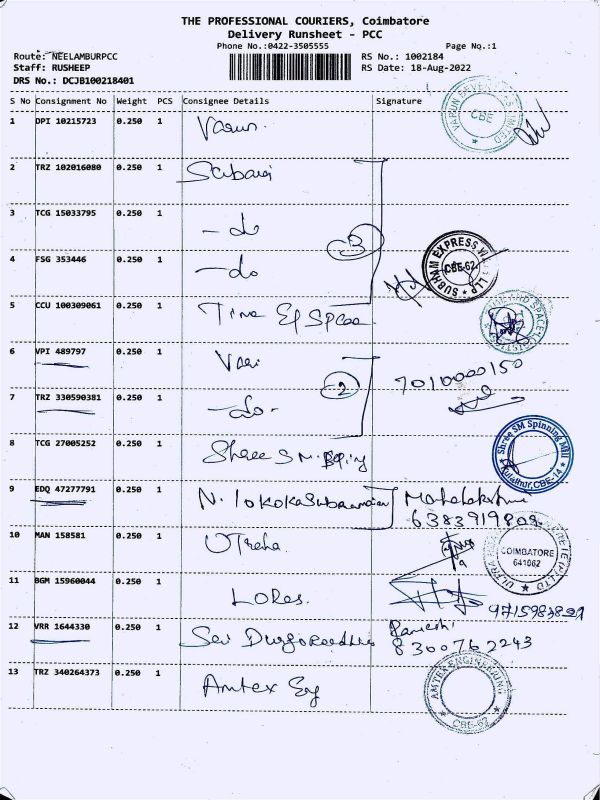 THE PROFESSIONAL COURIERS, Coimbatore
Delivery Runsheet - PCC
Phone No.:0422-3505555 Page No.:1
Route: NEELAMBURPCC RS No.: 1002184
Staff: RUSHEEP RS Date: 18-Aug-2022
DRS No.: DCJB100218401
S No Consignment No Weight PCS Consignee Details Signature
1 DPI 10215723 0.250 1 Varun CBE
2 TRZ 102016080 0.250 1
3 TCG 15033795 0.250 1 - do 3
4 FSG 353446 0.250 1 - do SUBHAM EXPRESS LLP CBE-62
5 CCU 100309061 0.250 1 Time
6 VPI 489797 0.250 1 7010000150
7 TRZ 330590381 0.250 1 -do- 2
8 TCG 27005252 0.250 1 Shree SM Shree SM Spinning Mill CBE-14
9 EDQ 47277791 0.250 1 N.
10 MAN 158581 0.250 1 COIMBATORE 641062
11 BGM 15960044 0.250 1
12 VRR 1644330 0.250 1 Ramesh 8300762243
13 TRZ 340264373 0.250 1 Amtex Eng AMTEX ENGINEERING CBE-62